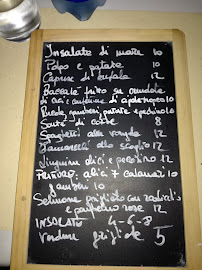 Insalate di mare 10
Polpo e patate 10
Caprese di bufala 12
Baccalà fritto su crudole
di ceci e composta di cipolle rosse 10
patate e pecorino 10
Sauté di cozze 8
Spaghetti alle vongole 12
scoglio 12
Linguine alici e pecorino 12
FRITTURE: alici 7 calamari 10
gamberi 10
Salmone grigliato con radicchio
e pompelmo rosa 12
INSALATE 4-6-8
Verdure grigliate 5